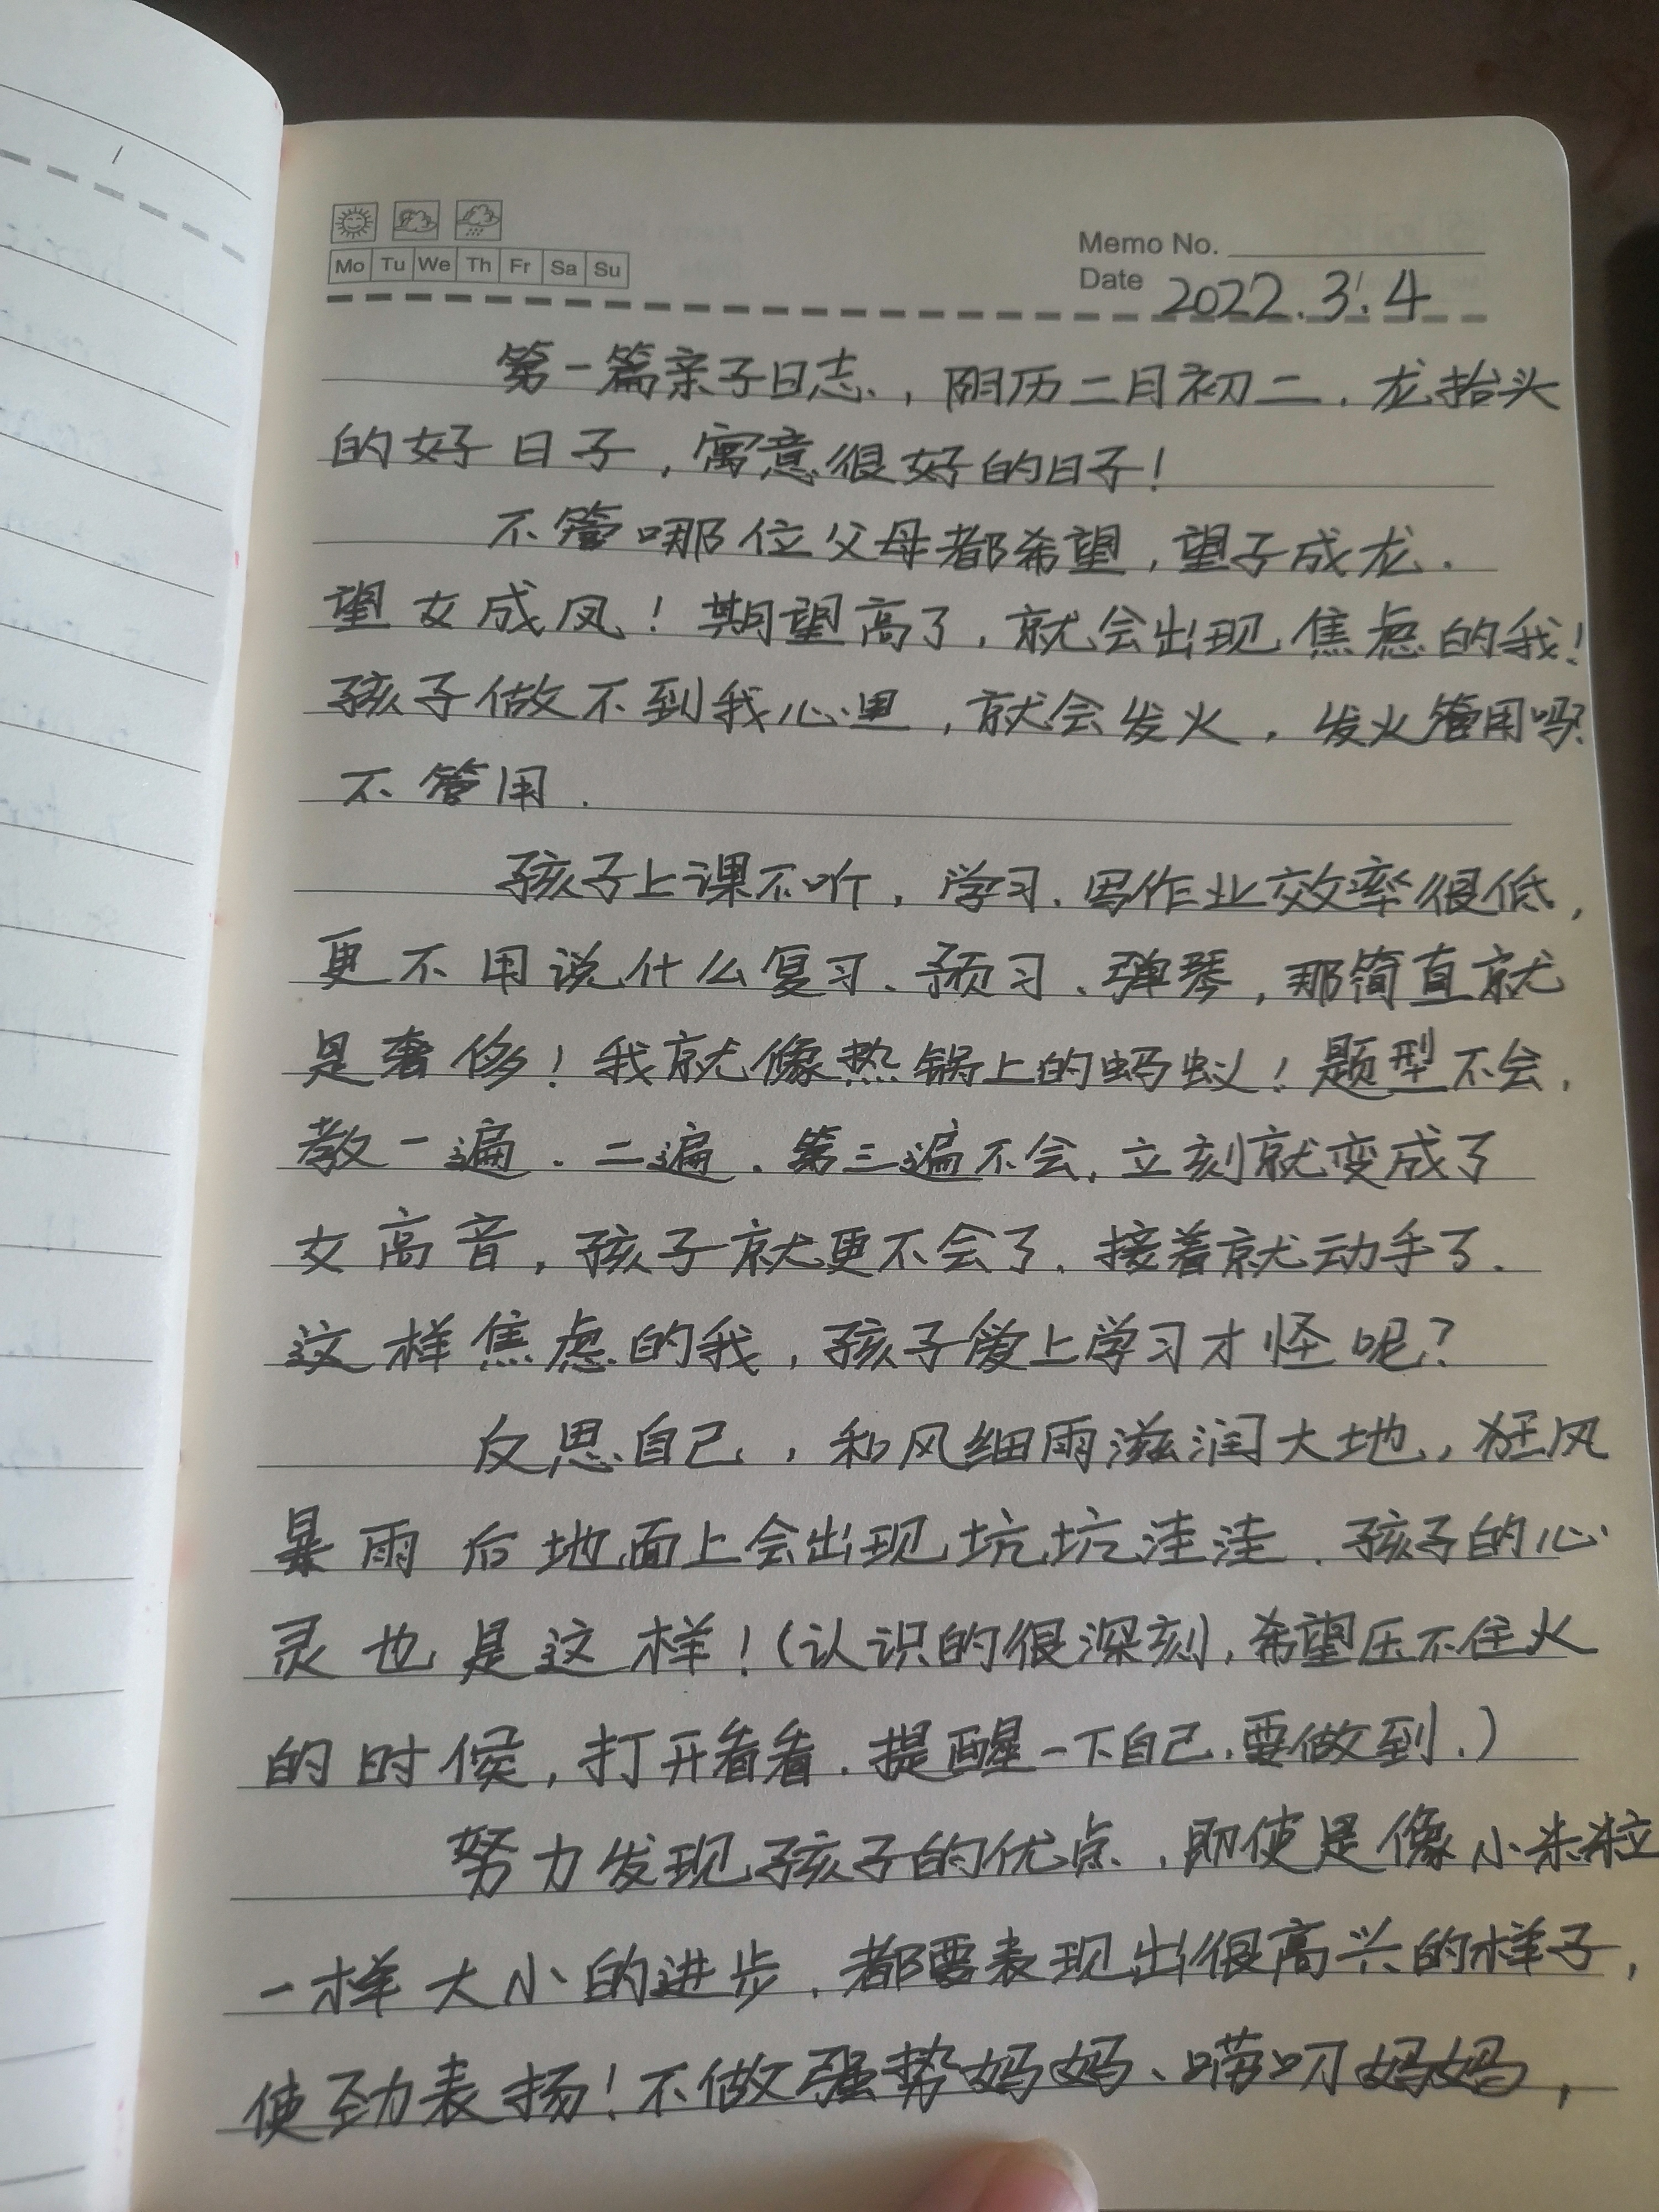 Mo Tu We Th Fr Sa Su
Memo No.
Date 2022.3.4
第一篇亲子日志，阴历二月初二．龙抬头
的好日子，寓意很好的日子！
不管哪位父母都希望，望子成龙．
望女成凤！期望高了，就会出现焦虑的我！
孩子做不到我心里，就会发火，发火管用吗？
不管用．
孩子上课不听，学习．写作业效率很低，
更不用说什么复习、预习、弹琴，那简直就
是奢侈！我就像热锅上的蚂蚁！题型不会，
教一遍．二遍．第三遍不会，立刻就变成了
女高音，孩子就更不会了．接着就动手了．
这样焦虑的我，孩子爱上学习才怪呢？
反思自己，和风细雨滋润大地，狂风
暴雨后地面上会出现坑坑洼洼．孩子的心
灵也是这样！（认识的很深刻，希望压不住火
的时候，打开看看．提醒一下自己．要做到．）
努力发现孩子的优点．即使是像小米粒
一样大小的进步．都要表现出很高兴的样子，
使劲表扬！不做强势妈妈、唠叨妈妈，